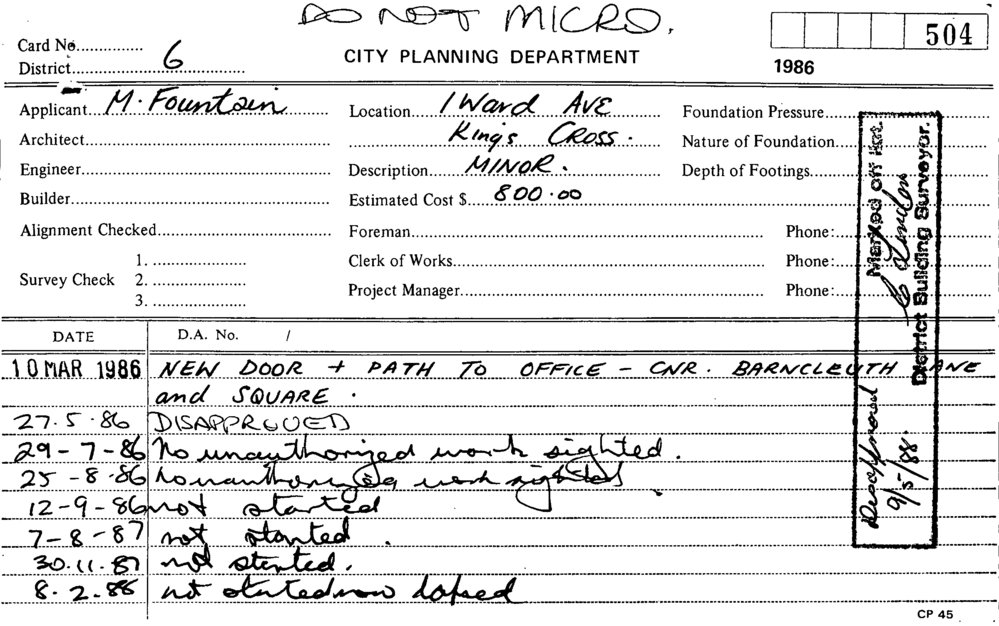 DO NOT MICRO.
Card No................
District................ 6
CITY PLANNING DEPARTMENT
504
1986
Applicant... M. Fountain
Location... 1 Ward AVE
Foundation Pressure
Architect
King's CROSS.
Nature of Foundation
Engineer
Description... MINOR.
Depth of Footings
Builder
Estimated Cost $... 800.00
Alignment Checked
Foreman
Phone:
Survey Check
1.
2.
3.
Clerk of Works
Phone:
Project Manager
Phone:
Marked off Hot
District Building Surveyor.
Disapproved
9/5/88.
DATE
D.A. No. /
10 MAR 1986 NEW DOOR + PATH TO OFFICE - CNR. BARNCLEUTH LANE
and SQUARE.
27.5.86 DISAPPROVED
29-7-86 No unauthorized work sighted.
25-8-86 No unauthorized work sighted
12-9-86 not started
7-8-87 not started.
30.11.87 not started.
8.2.88 not started now lapsed
CP 45